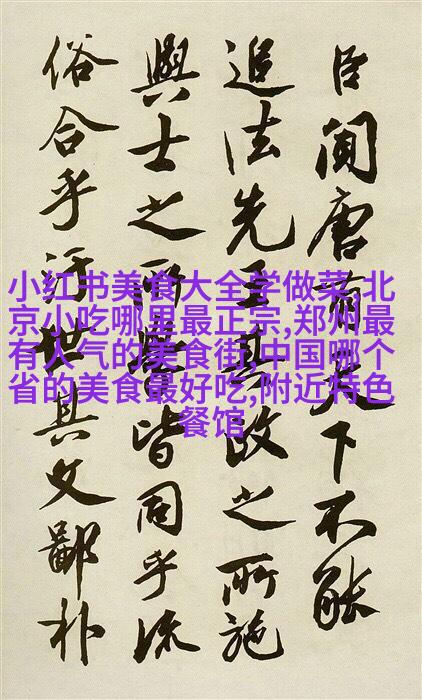 臣聞唐有天下不能
追法先王其政之所施
與士之所學皆同乎流
俗合乎汙世其文鄙朴
小红书美食大全学做菜,北
京小吃哪里最正宗,郑州最
有人气的美食街,中国哪个
省的美食最好吃,附近特色
餐馆